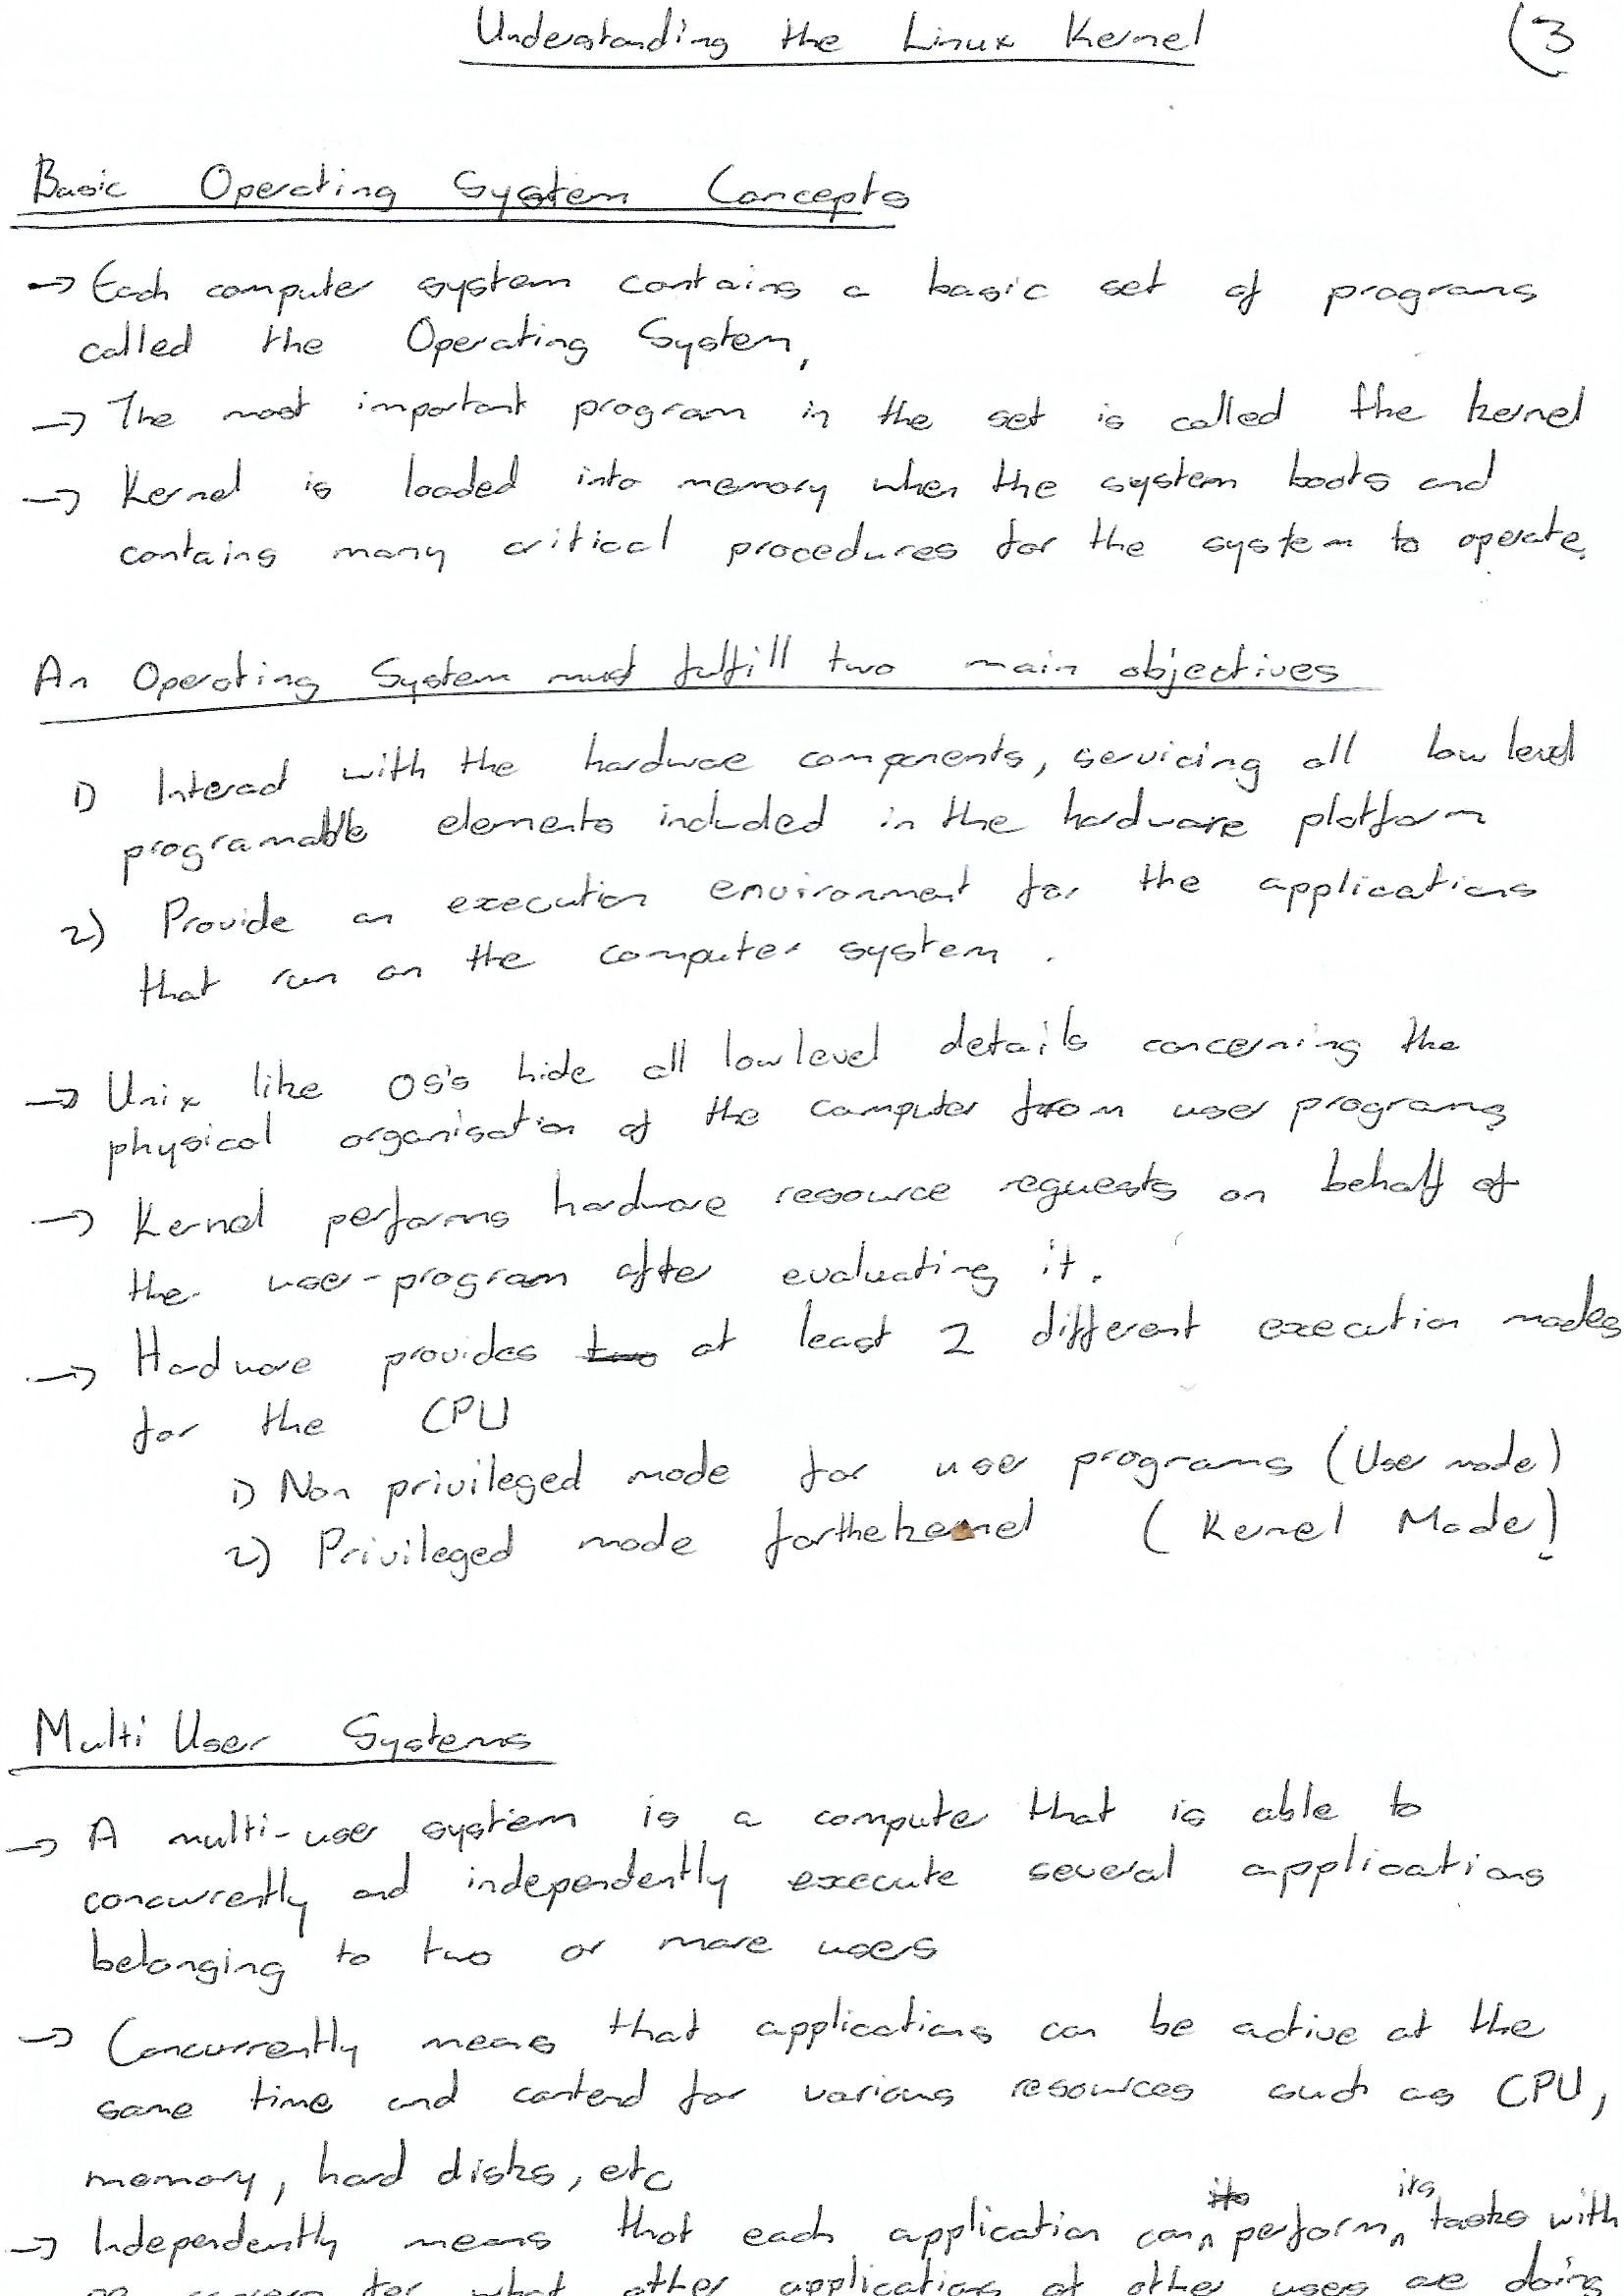 Understanding the Linux Kernel (3
Basic Operating System Concepts
→ Each computer system contains a basic set of programs
called the Operating System,
→ The most important program in the set is called the kernel
→ Kernel is loaded into memory when the system boots and
contains many critical procedures for the system to operate.
An Operating System must fulfill two main objectives
1) Interact with the hardware components, servicing all low level
programable elements included in the hardware platform
2) Provide an execution environment for the applications
that run on the computer system.
→ Unix like OS's hide all low level details concerning the
physical organisation of the computer from user programs
→ Kernel performs hardware resource requests on behalf of
the user-program after evaluating it.
→ Hardware provides two at least 2 different execution modes
for the CPU
1) Non privileged mode for user programs (User mode)
2) Privileged mode for the kernel (Kernel Mode)
Multi User Systems
→ A multi-user system is a computer that is able to
concurrently and independently execute several applications
belonging to two or more users
→ Concurrently means that applications can be active at the
same time and contend for various resources such as CPU,
memory, hard disks, etc
→ Independently means that each application can its perform its tasks with
no concern for what other applications of other users are doing